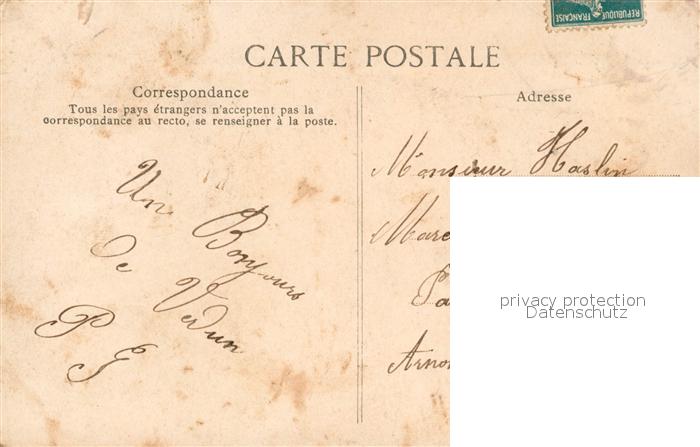 REPUBLIQUE
FRANÇAISE
CARTE POSTALE
Correspondance
Tous les pays étrangers n'acceptent pas la
correspondance au recto, se renseigner à la poste.
Un Bonjours
de Verdun
P G
Adresse
Monsieur Haslin
privacy protection
Datenschutz